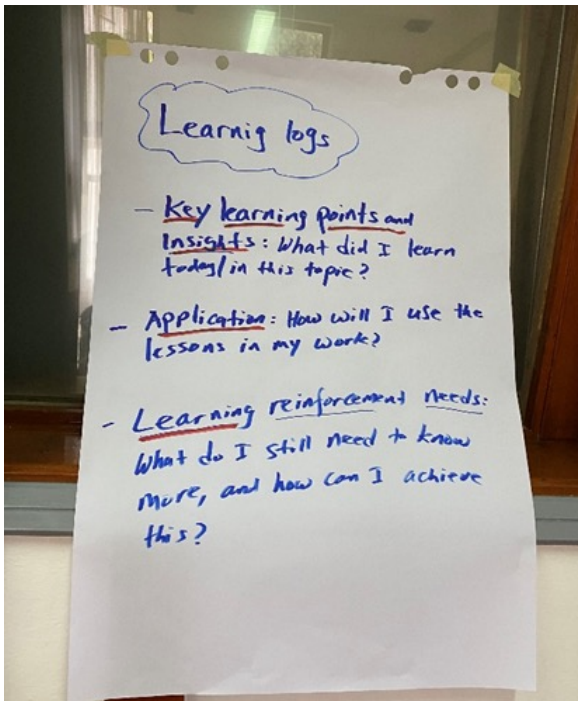 Learnig logs
- Key learning points and
Insights: What did I learn
today/in this topic?
- Application: How will I use the
lessons in my work?
- Learning reinforcement needs:
What do I still need to know
more, and how can I achieve
this?